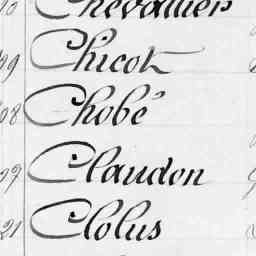 Chevallier
09 Chicot
08 Chobé
Claudon
21 Clolus